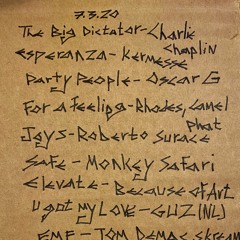 7.3.20
The Big Dictator-Charlie
Chaplin
Esperanza-Kermesse
Party People-Oscar G
For a feeling-Rhodes, Camel
phat
Joys-Roberto Surace
Safe-Monkey Safari
Elevate-Because of Art
U got my Love-GUZ(NL)
EMF-TOM Demac, Skream